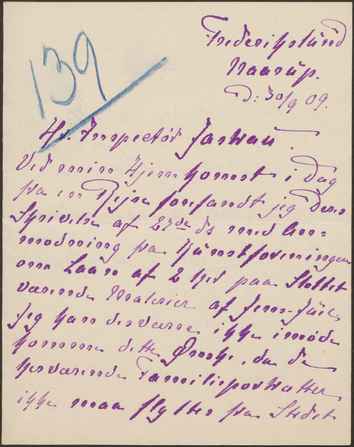 139
Frederikslund
Naarup.
D: 30/9 09.
Hr. Inspektör Jastrau.
Ved min Hjemkomst i Dag
fra en Rejse forefandt jeg Deres
Skrivelse af 27de ds med An-
modning fra Kunstforeningen
om Laan af 2 her paa Stedet
værende Malerier af Jens Juel.
Jeg kan desværre ikke imøde
komme dette Ønske, da de
herværende Familieportrætter
ikke maa flyttes fra Stedet